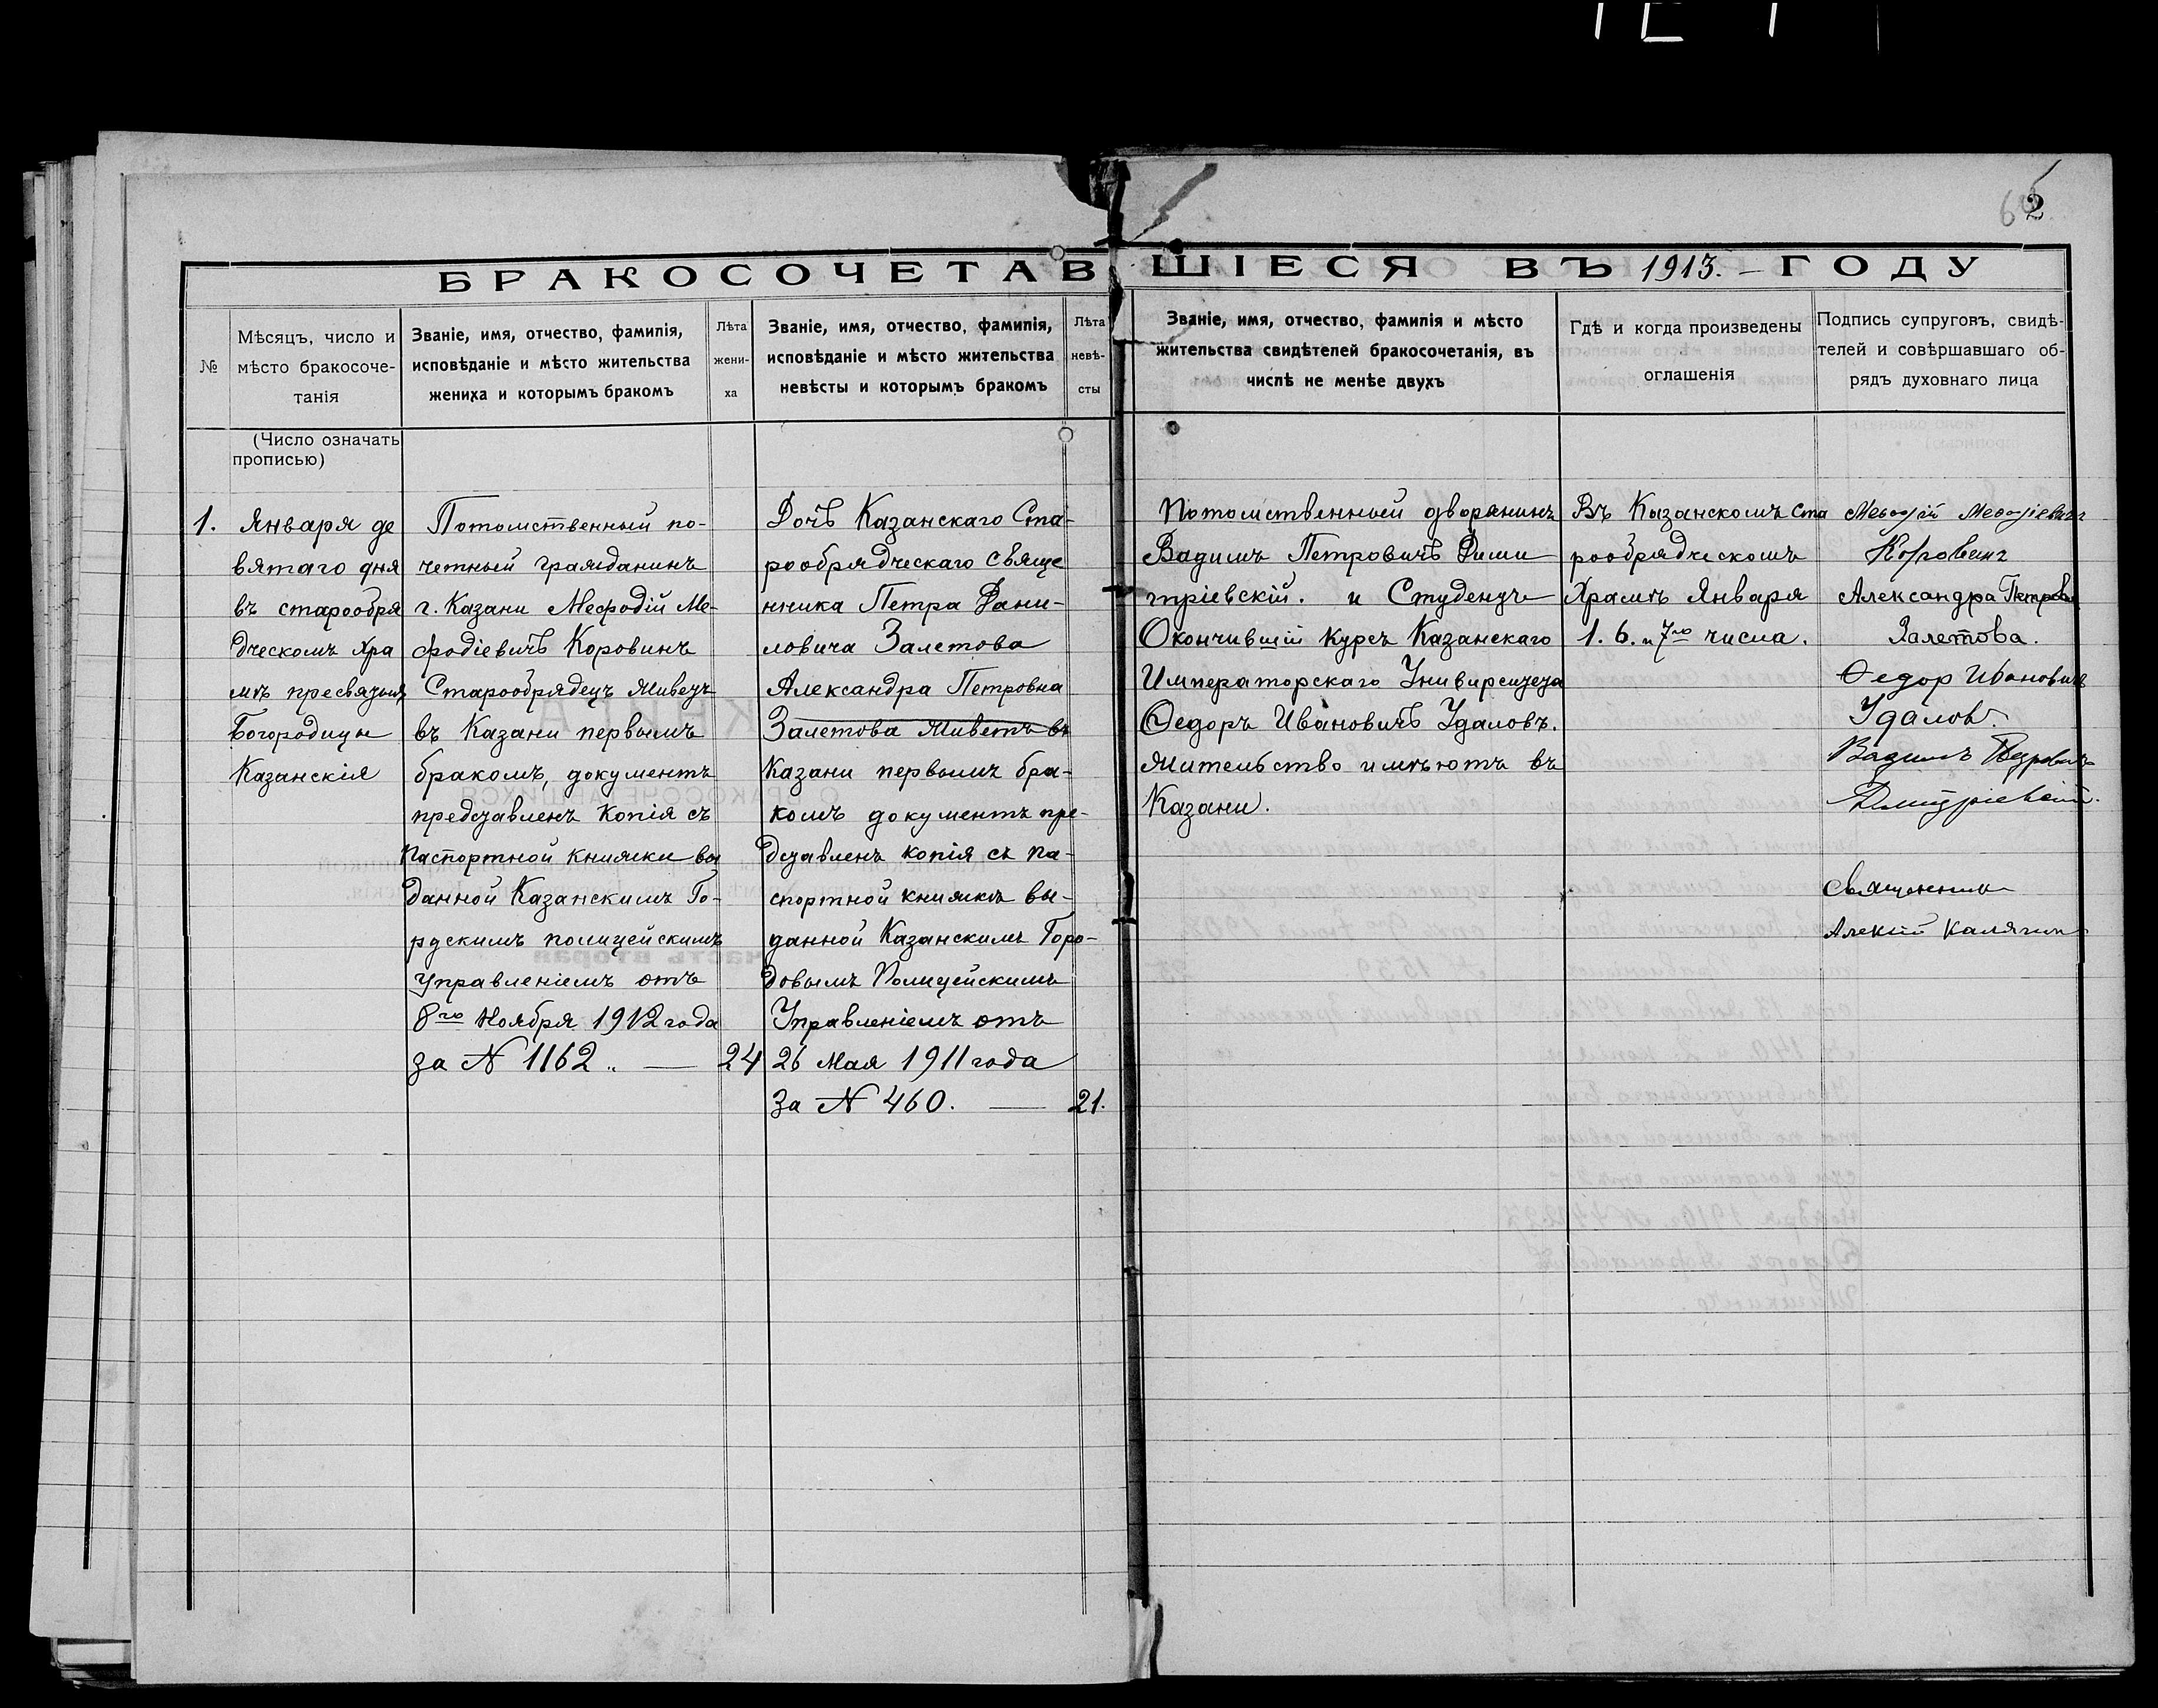 2
БРАКОСОЧЕТАВШІЕСЯ ВЪ 1913. – ГОДУ
№
Мѣсяцъ, число и
мѣсто бракосоче-
танія
Званіе, имя, отчество, фамилія,
исповѣданіе и мѣсто жительства
жениха и которымъ бракомъ
Лѣта
жени-
ха
Званіе, имя, отчество, фамилія,
исповѣданіе и мѣсто жительства
невѣсты и которымъ бракомъ
Лѣта
невѣ-
сты
Званіе, имя, отчество, фамилія и мѣсто
жительства свидѣтелей бракосочетанія, въ
числѣ не менѣе двухъ
Гдѣ и когда произведены
оглашенія
Подпись супруговъ, свидѣ-
телей и совѣршавшаго об-
рядъ духовнаго лица
(Число означать
прописью)
1.
Января де
вятаго дня
въ старообря
дческомъ хра
мѣ пресвятыя
Богородицы
Казанскія
Потомственный по-
четный гражданинъ
г. Казани Мефодій Ме-
фодіевичъ Коровинъ
Старообрядецъ живетъ
въ Казани первымъ
бракомъ, документъ
представленъ копія съ
паспортной книжки вы
данной Казанскимъ Го-
рдскимъ полицейскимъ
управленіемъ отъ
8го Ноября 1912 года
за N 1162 „ —
24
Дочь Казанскаго Ста-
рообрядческаго свяще
нника Петра Дани-
ловича Залетова
Александра Петровна
Залетова живетъ въ
Казани первымъ бра-
комъ документъ пре-
дставленъ копія съ па-
спортной книжкѣ вы-
данной Казанскимъ Горо-
довымъ Полицейскимъ
Управленіемъ отъ
26 Мая 1911 года
за N 460. —
21.
Потомственный дворянинъ
Вадимъ Петровичъ Дими
тріевскій. и Студентъ
Окончившій курсъ Казанскаго
Императорскаго Унивирситета
Ѳедоръ Ивановичъ Удаловъ.
жительство имѣютъ въ
Казани.
Въ Казанскомъ Ста
рообрядческомъ
Храмѣ Января
1. 6. и 7го числа.
Меѳодій Меѳодіевичъ
Коровинъ
Александра Петровн
Залетова.
Ѳедор Ивановичъ
Удалов.
Вадимъ Петровичъ
Димитріевскій.
Священникъ
Алексій Калягинъ